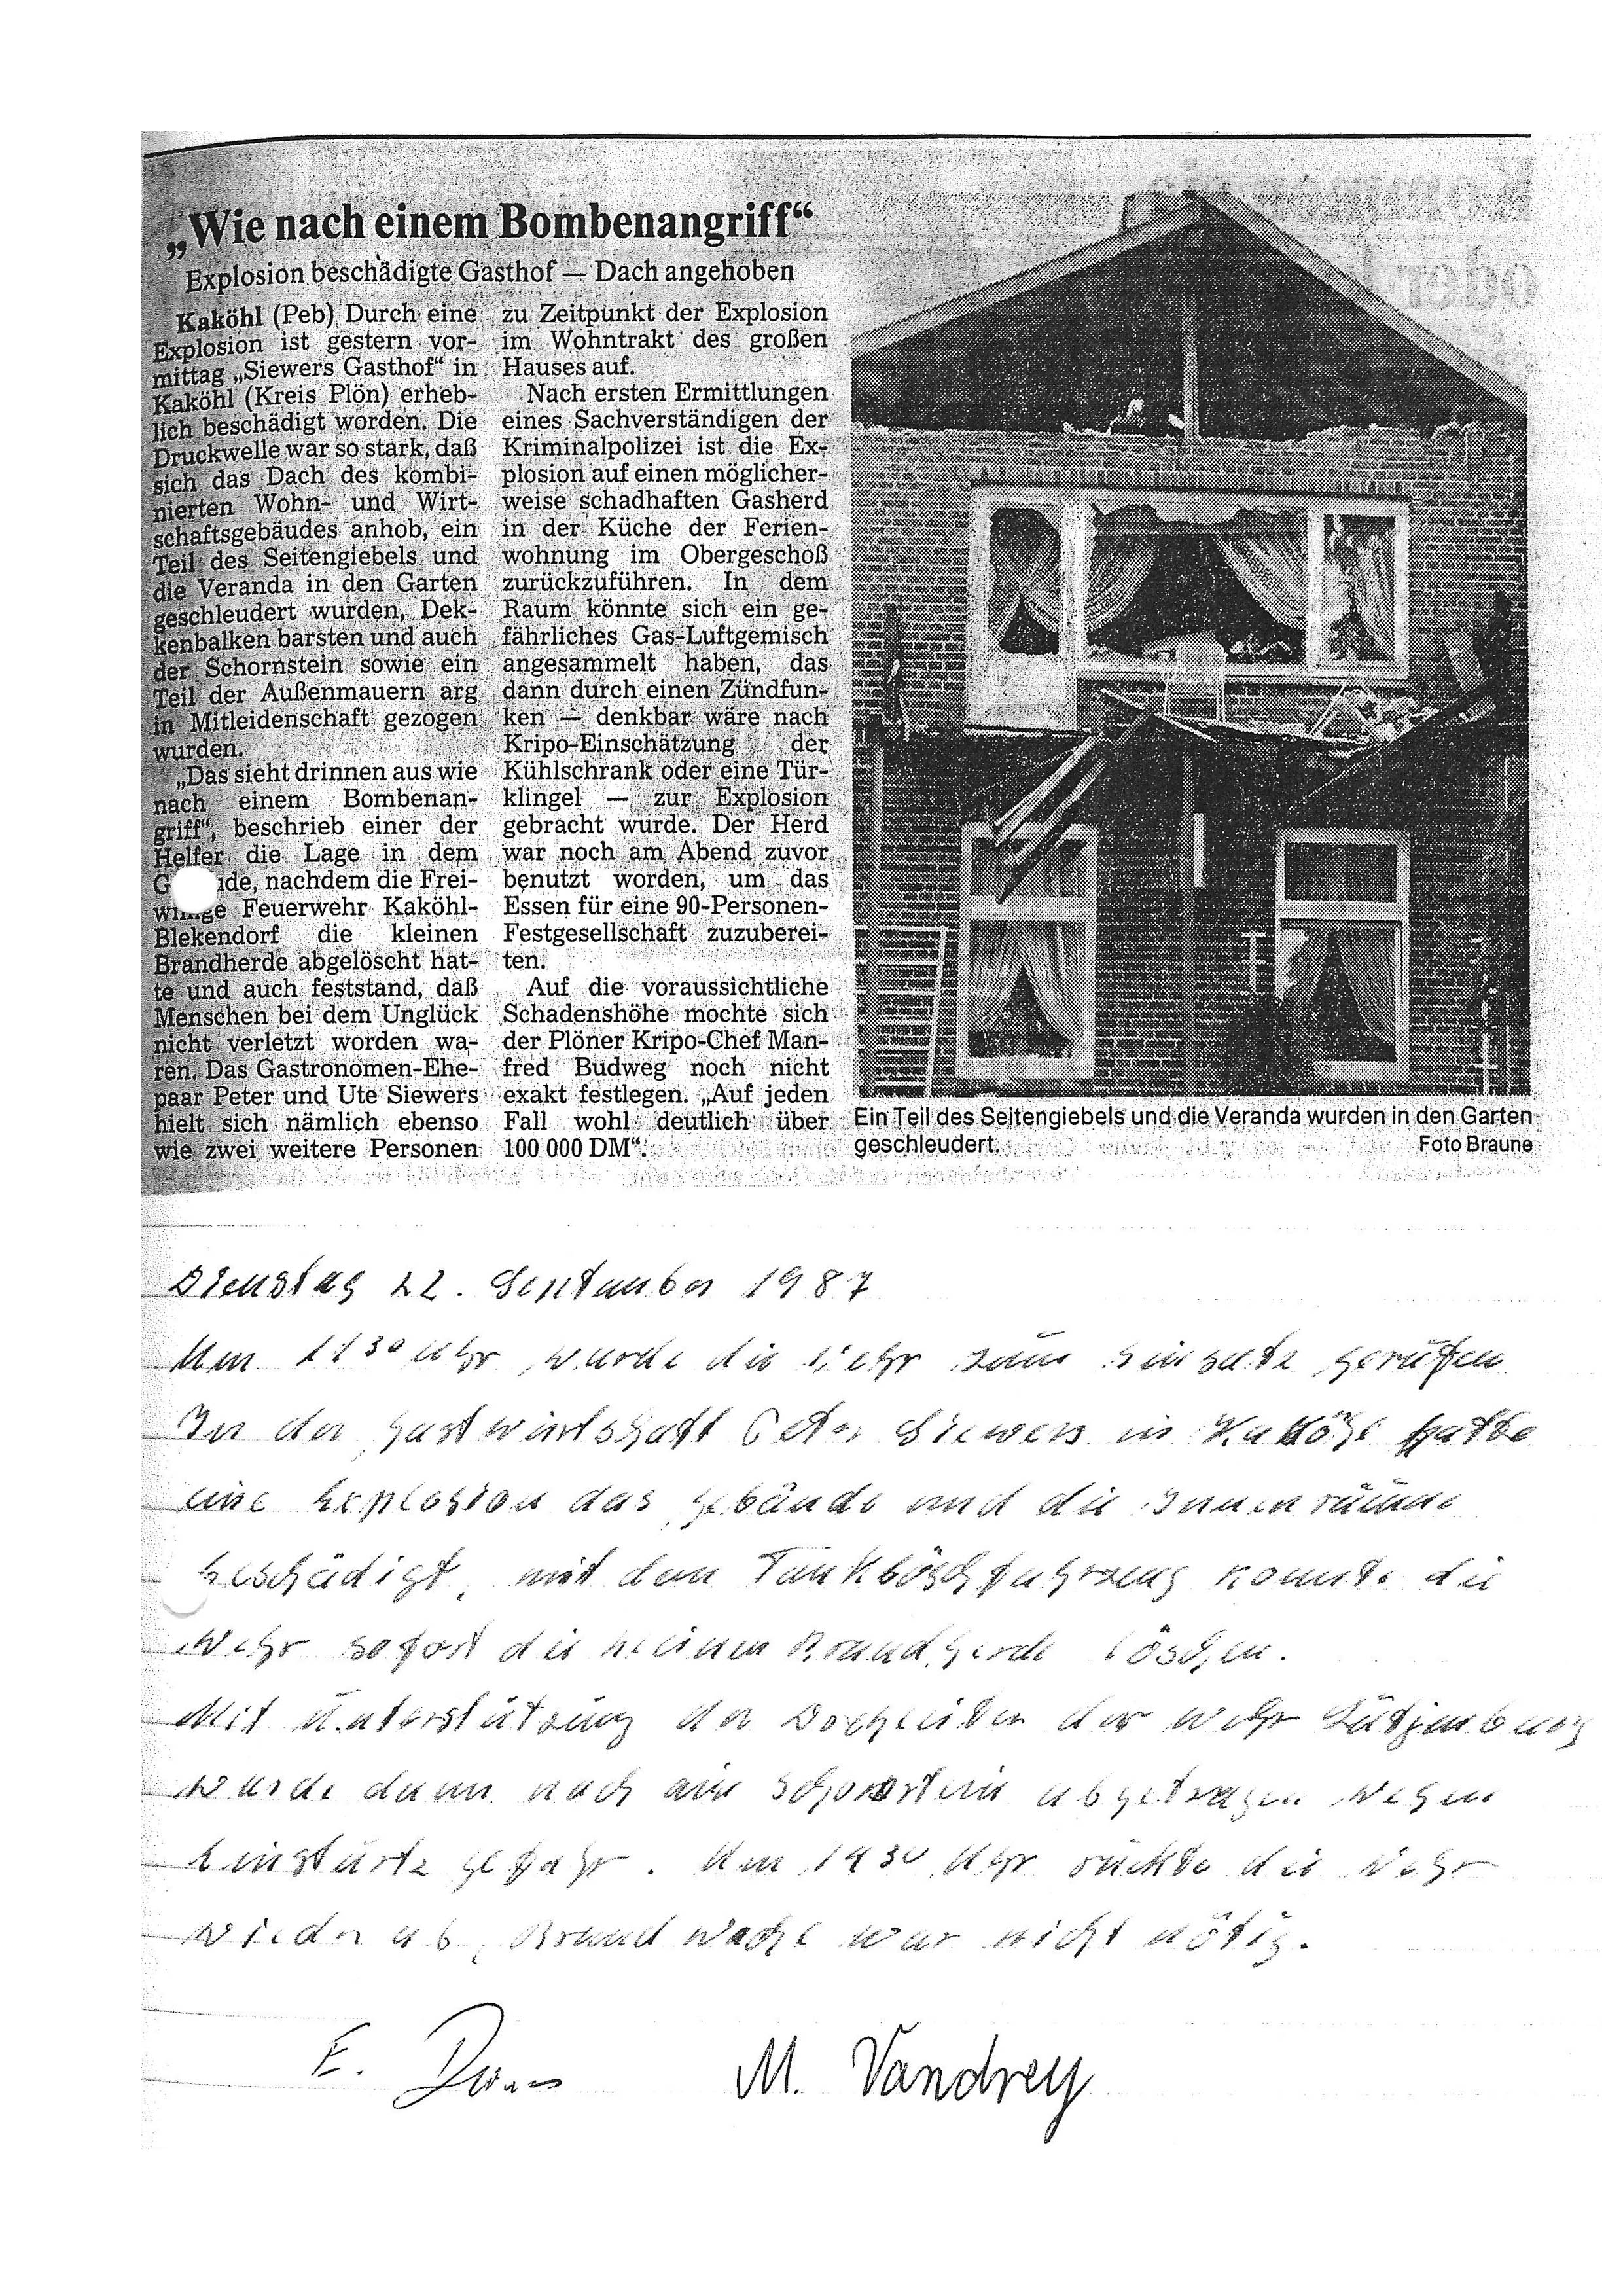 „Wie nach einem Bombenangriff“
Explosion beschädigte Gasthof — Dach angehoben
Kaköhl (Peb) Durch eine
Explosion ist gestern vor-
mittag „Siewers Gasthof“ in
Kaköhl (Kreis Plön) erheb-
lich beschädigt worden. Die
Druckwelle war so stark, daß
sich das Dach des kombi-
nierten Wohn- und Wirt-
schaftsgebäudes anhob, ein
Teil des Seitengiebels und
die Veranda in den Garten
geschleudert wurden, Dek-
kenbalken barsten und auch
der Schornstein sowie ein
Teil der Außenmauern arg
in Mitleidenschaft gezogen
wurden.
„Das sieht drinnen aus wie
nach einem Bombenan-
griff“, beschrieb einer der
Helfer die Lage in dem
G de, nachdem die Frei-
willige Feuerwehr Kaköhl-
Blekendorf die kleinen
Brandherde abgelöscht hat-
te und auch feststand, daß
Menschen bei dem Unglück
nicht verletzt worden wa-
ren. Das Gastronomen-Ehe-
paar Peter und Ute Siewers
hielt sich nämlich ebenso
wie zwei weitere Personen
zu Zeitpunkt der Explosion
im Wohntrakt des großen
Hauses auf.
Nach ersten Ermittlungen
eines Sachverständigen der
Kriminalpolizei ist die Ex-
plosion auf einen möglicher-
weise schadhaften Gasherd
in der Küche der Ferien-
wohnung im Obergeschoß
zurückzuführen. In dem
Raum könnte sich ein ge-
fährliches Gas-Luftgemisch
angesammelt haben, das
dann durch einen Zündfun-
ken — denkbar wäre nach
Kripo-Einschätzung der
Kühlschrank oder eine Tür-
klingel — zur Explosion
gebracht wurde. Der Herd
war noch am Abend zuvor
benutzt worden, um das
Essen für eine 90-Personen-
Festgesellschaft zuzuberei-
ten.
Auf die voraussichtliche
Schadenshöhe mochte sich
der Plöner Kripo-Chef Man-
fred Budweg noch nicht
exakt festlegen. „Auf jeden
Fall wohl deutlich über
100 000 DM“.
Ein Teil des Seitengiebels und die Veranda wurden in den Garten
geschleudert. Foto Braune
Dienstag 22. September 1987
Um 11 30 Uhr wurde die Wehr zum Einsatz gerufen
In der Gastwirtschaft Peter Siewers in Kaköhl hatte
eine Explosion das Gebäude und die Innenräume
beschädigt, mit dem Tanklöschfahrzeug konnte die
Wehr sofort die kleinen Brandherde löschen.
Mit Unterstützung der der Wehr Lütjenburg
wurde dann noch ein Schornstein abgetragen wegen
Einsturtz gefahr. Um 14 30 Uhr rückte die Wehr
wieder ab, Brand wache war nicht nötig.
E. M. Vandrey